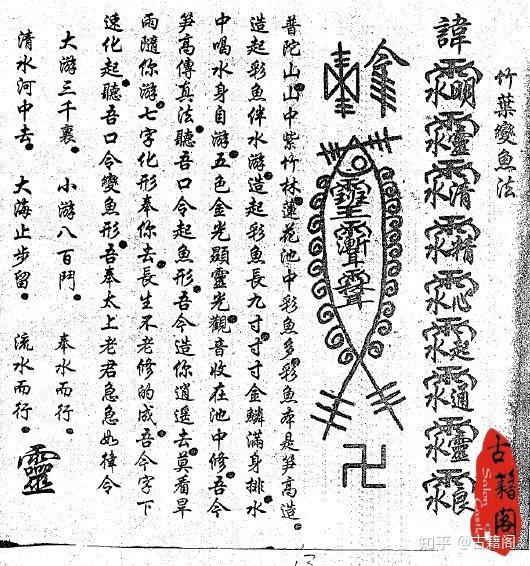 竹葉變魚法
諱
卍
普陀山山中紫竹林。蓮花池中彩魚多。彩魚本是笋高造。
造起彩魚伴水游。造起彩魚長九寸。寸寸金鱗滿身排。水
中喝水身自游。五色金光顯靈光。觀音收在池中修。吾今
笋高傳真法。聽吾口令起魚形。吾今造你逍遥去。莫看旱
雨隨你游。七字化形奉你去。長生不老修的成。吾今字下
速化起。聽吾口令變魚形。吾奉太上老君急急如律令
大游三千裏。 小游八百門。 奉水而行。
清水河中去。 大海止步留。 流水而行。 靈
13
古籍閣
Salon
知乎 @古籍阁